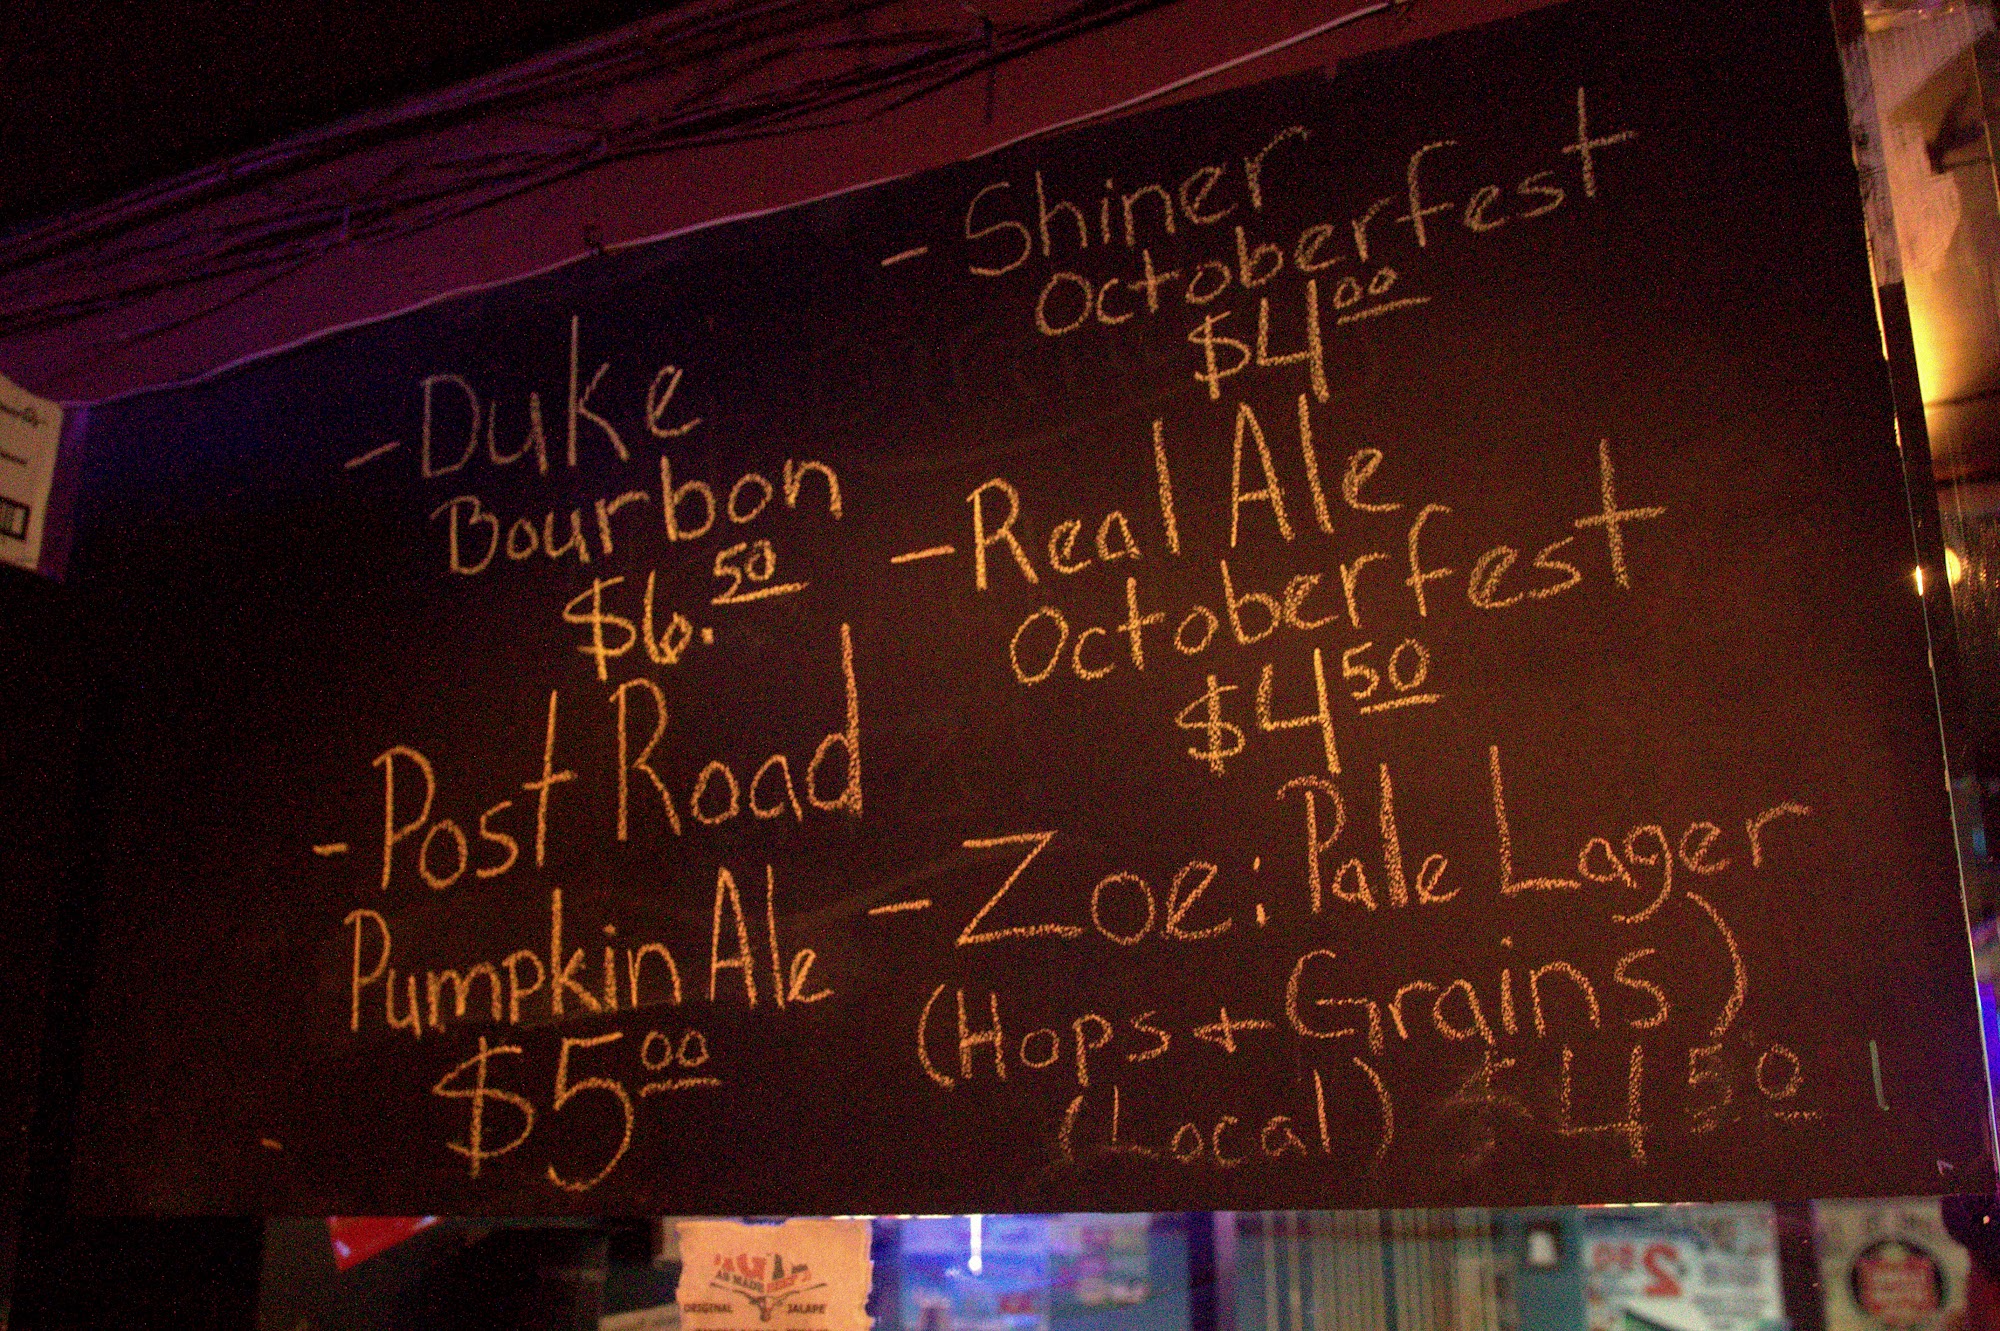 - Duke
Bourbon
$6.50
- Post Road
Pumpkin Ale
$5.00
- Shiner
Octoberfest
$4.00
- Real Ale
Octoberfest
$4.50
- Zoe: Pale Lager
(Hops + Grains)
(Local) $4.50
AS MADE
ORIGINAL JALAPE